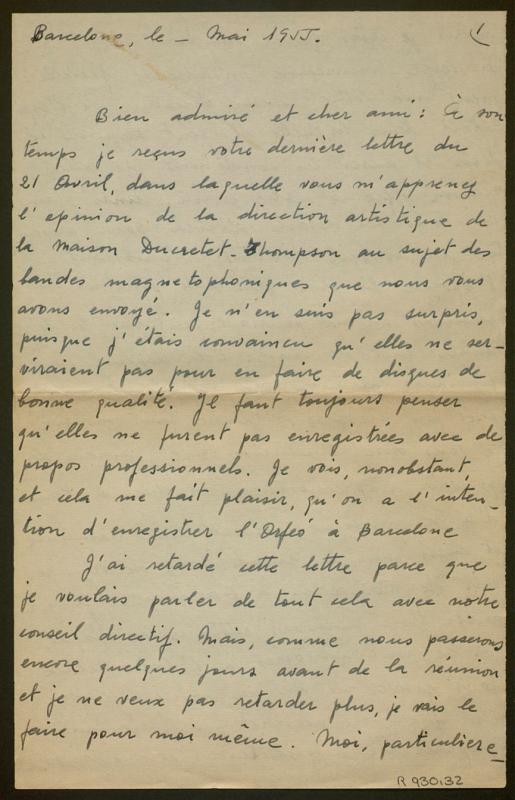 Barcelone, le – Mai 1955.
1
Bien admiré et cher ami: À son
temps je reçus votre dernière lettre du
21 Avril, dans laquelle vous m'apprenez
l'opinion de la direction artistique de
la maison Ducretet-Thompson au sujet des
bandes magnetophoniques que nous vous
avons envoyé. Je n'en suis pas surpris,
puisque j'étais convaincu qu'elles ne ser-
viraient pas pour en faire de disques de
bonne qualité. Il faut toujours penser
qu'elles ne furent pas enregistrées avec de
propos professionnels. Je vois, nonobstant,
et cela me fait plaisir, qu'on a l'inten-
tion d'enregistrer l'Orfeó à Barcelone
J'ai retardé cette lettre parce que
je voulais parler de tout cela avec notre
conseil directif. Mais, comme nous passerons
encore quelques jours avant de la réunion
et je ne veux pas retarder plus, je vais le
faire pour moi même. Moi, particulière-
R 930,32